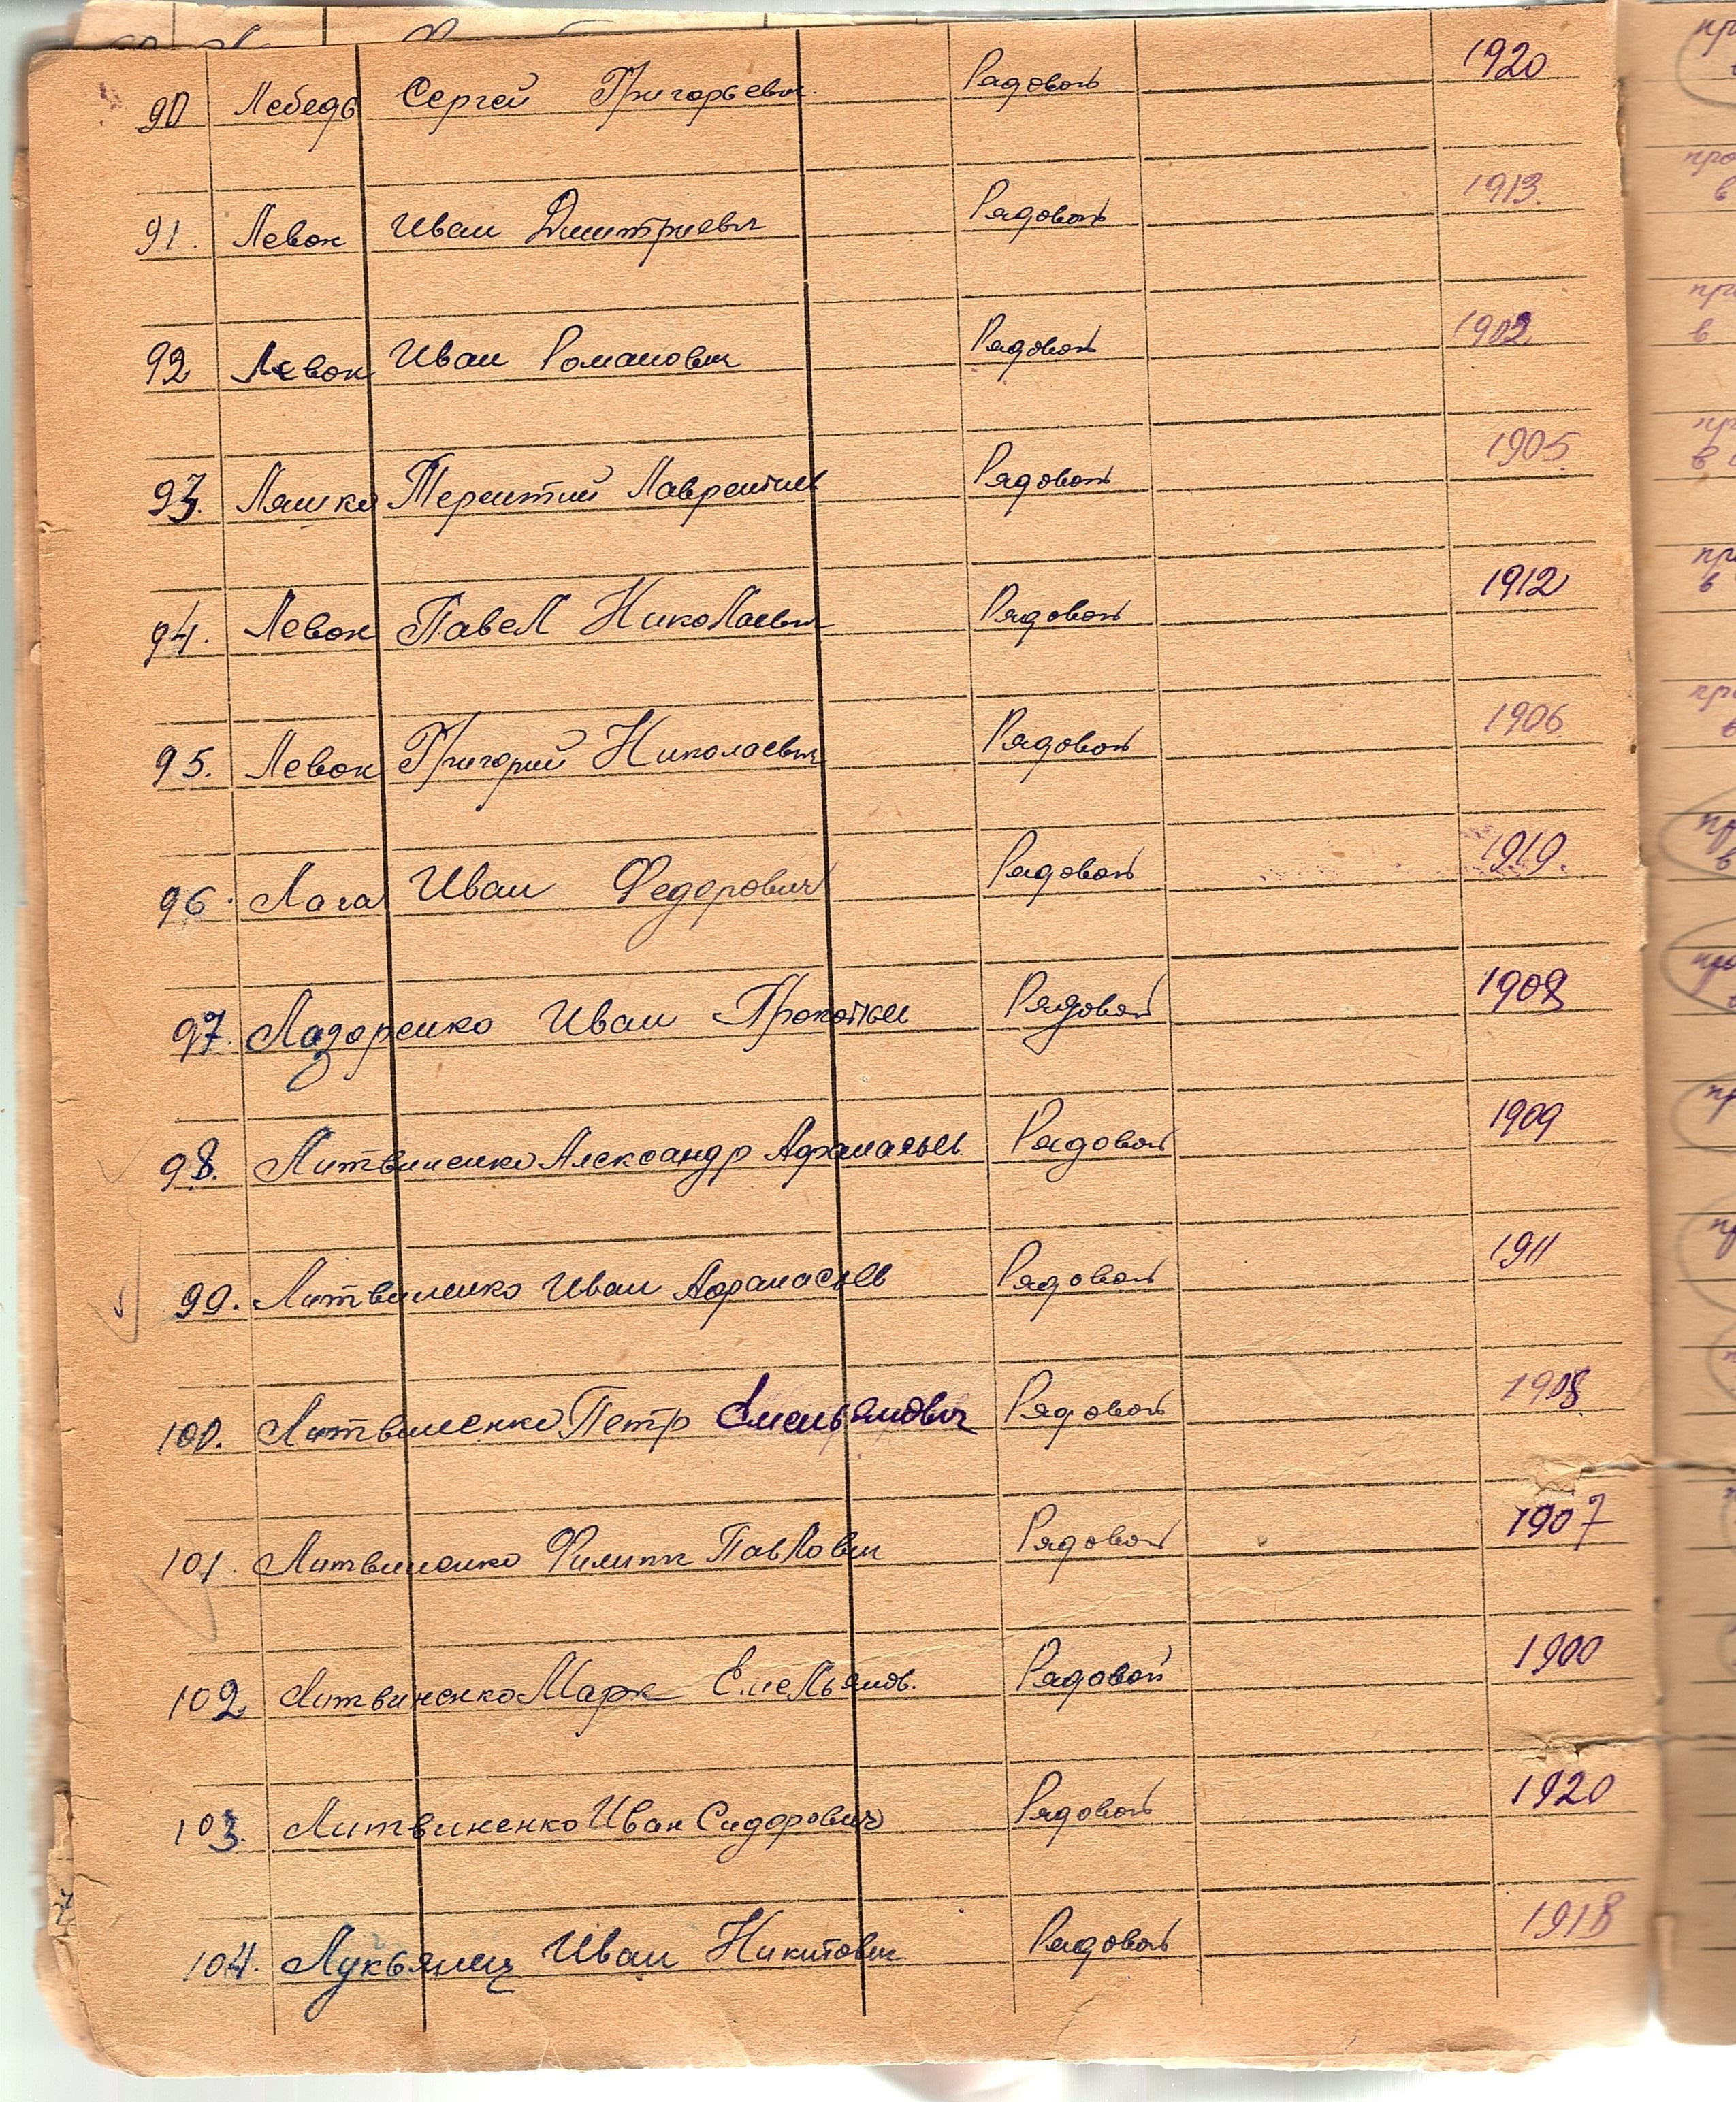 90 Лебедь Сергей Григорьевич Рядовой 1920
91. Левон Иван Дмитриевич Рядовой 1913.
92 Левон Иван Романович Рядовой 1902
93. Ляшко Терентий Лаврентьев Рядовой 1905
94. Левон Павел Николаевич Рядовой 1912
95. Левон Григорий Николаевич Рядовой 1906
96. Лага Иван Федорович Рядовой 1919.
97. Лазаренко Иван Прокопьев Рядовой 1908
98. Литвиненко Александр Афанасьев. Рядовой 1909
99. Литвиненко Иван Афанасьев Рядовой 1911
100. Литвиненко Петр Емельянович Рядовой 1908
101. Литвиненко Филипп Павлович Рядовой 1907
102. Литвиненко Марк Емельянов. Рядовой 1900
103. Литвиненко Иван Сидорович Рядовой 1920
104. Лукьянец Иван Никитович Рядовой 1918